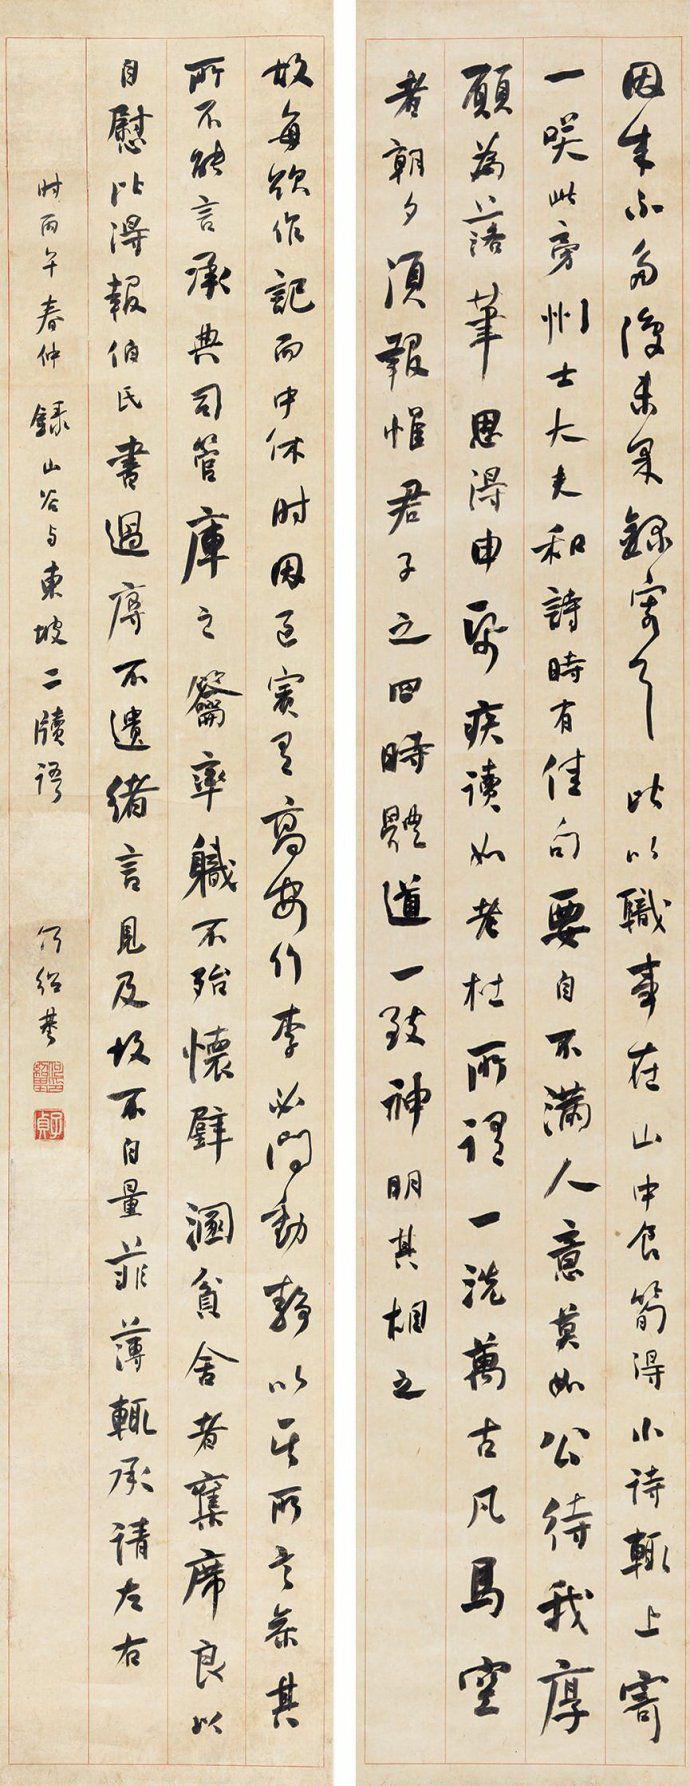 因來不復未果錄寄耳 比以職事在山中食筍得小詩輒上寄
一咲此旁州士大夫和詩時有佳句要自不滿人意莫如公待我厚
願為落筆思得申紙疾讀如老杜所謂一洗萬古凡馬空
者朝夕須報惟君子之四時體道一致神明其相之
故每欲作記而中休时因過賓見高安行李必問動静以其所言參其
所不能言承典司管庫之籥率職不殆懷璧溷貧舍者奪席良以
自慰比得報伯氏書過辱不遺緒言見及故不自量菲薄輒承请左右
时丙午春仲錄山谷与東坡二牘语 何紹基
子貞